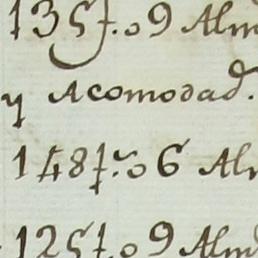 1357.09 Alm
y Acomodad.
1487.06 Al
1257.09 Alm